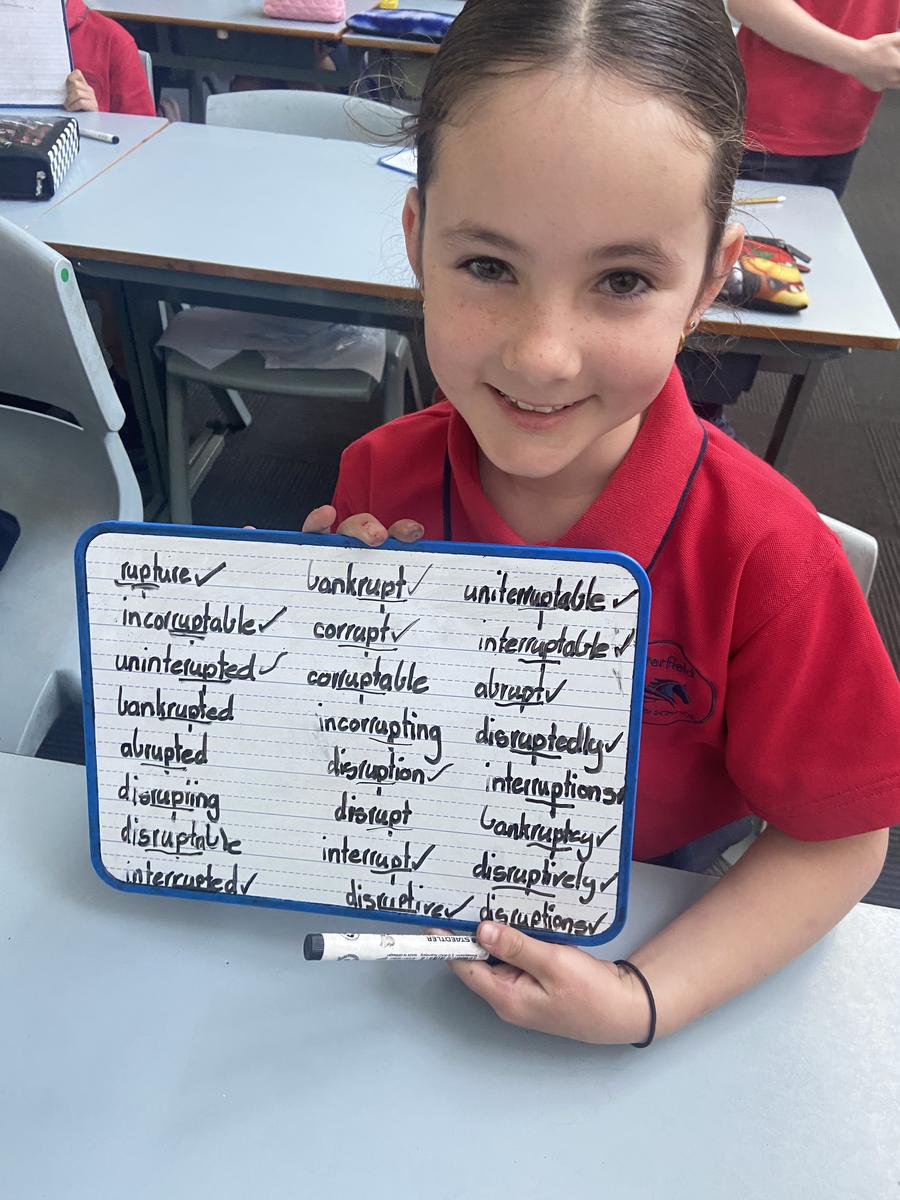 rupture ✓
incorruptable ✓
uninterupted ✓
bankrupted
abrupted
disrupiing
disruptable
interrupted ✓
bankrupt ✓
corrupt ✓
corruptable
incorrupting
disruption ✓
disrupt
interrupt ✓
disruptive ✓
uniterruptable ✓
interruptable ✓
abrupt ✓
disruptedly ✓
interruptions ✓
bankruptcy ✓
disruptively ✓
disruptions ✓
STAEDTLER